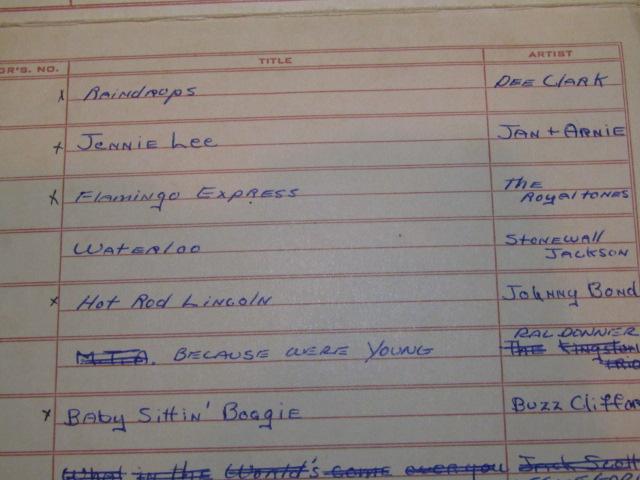 OR'S. NO. TITLE ARTIST
x RAINDROPS DEE CLARK
x JENNIE LEE JAN + ARNIE
x FLAMINGO EXPRESS THE
ROYALTONES
WATERLOO STONEWALL
JACKSON
x HOT ROD LINCOLN JOHNNY BOND
RAL DONNER
M.T.A. BECAUSE WERE YOUNG THE KINGSTON
TRIO
x BABY SITTIN' BOOGIE BUZZ CLIFFOR
WHAT IN THE WORLD'S COME OVER YOU JACK SCOTT